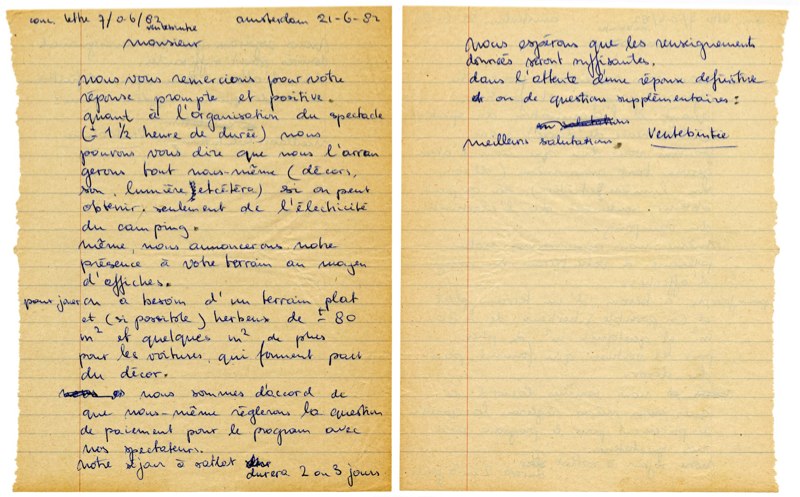 conc. lettre 7/06/82 amsterdam 21-6-82
ventebintie
monsieur
nous vous remercions pour votre
réponse prompte et positive.
quant à l'organisation du spectacle
(± 1 1/2 heure de durée) nous
pouvons vous dire que nous l'arran
gerons tout nous-même (décors,
son, lumière, etcétéra) si on peut
obtenir. seulement de l'électricité
du camping.
même, nous annoncerons notre
présence à votre terrain au moyen
d'affiches.
pour jouer on à besoin d'un terrain plat
et (si possible) herbeus de ± 80
m² et quelques m² de plus
pour les voitures, qui forment part
du décor.
nous sommes d'accord de
que nous-même réglerons la question
de paiement pour le program avec
nos spectateurs.
notre séjour à sarlat
durera 2 ou 3 jours
nous espérons que les renseignements
donnés seront suffisantes.
dans l'attente d'une réponse definitive
et on de questions supplémentaires:
salutations
meilleurs salutations. Ventebintie